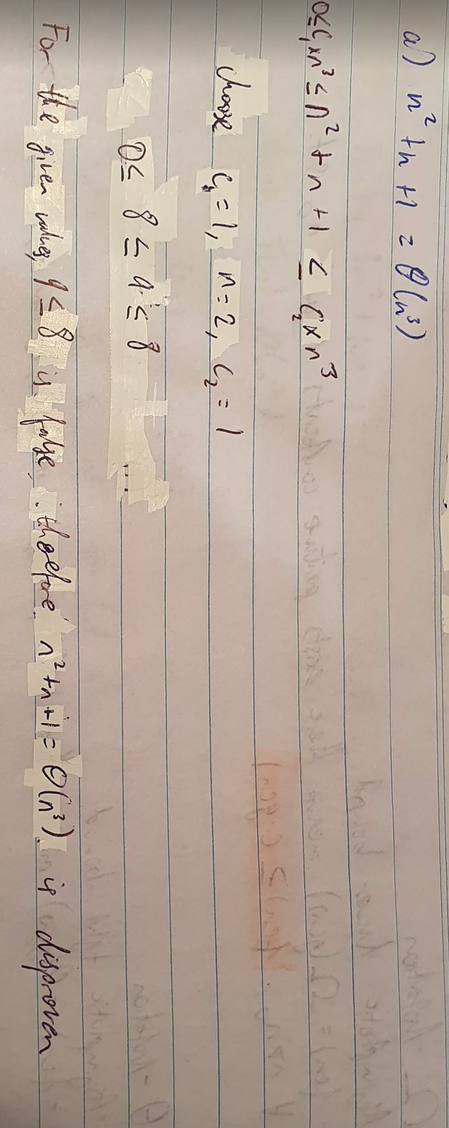 a) n² + n + 1 = θ(n³)
0 ≤ C₁ × n³ ≤ n² + n + 1 ≤ C₂ × n³
choose C₁ = 1, n = 2, C₂ = 1
0 ≤ 8 ≤ 9 ≤ 8 ...
For the given values, 9 ≤ 8 is false, therefore, n² + n + 1 = θ(n³) is disproven